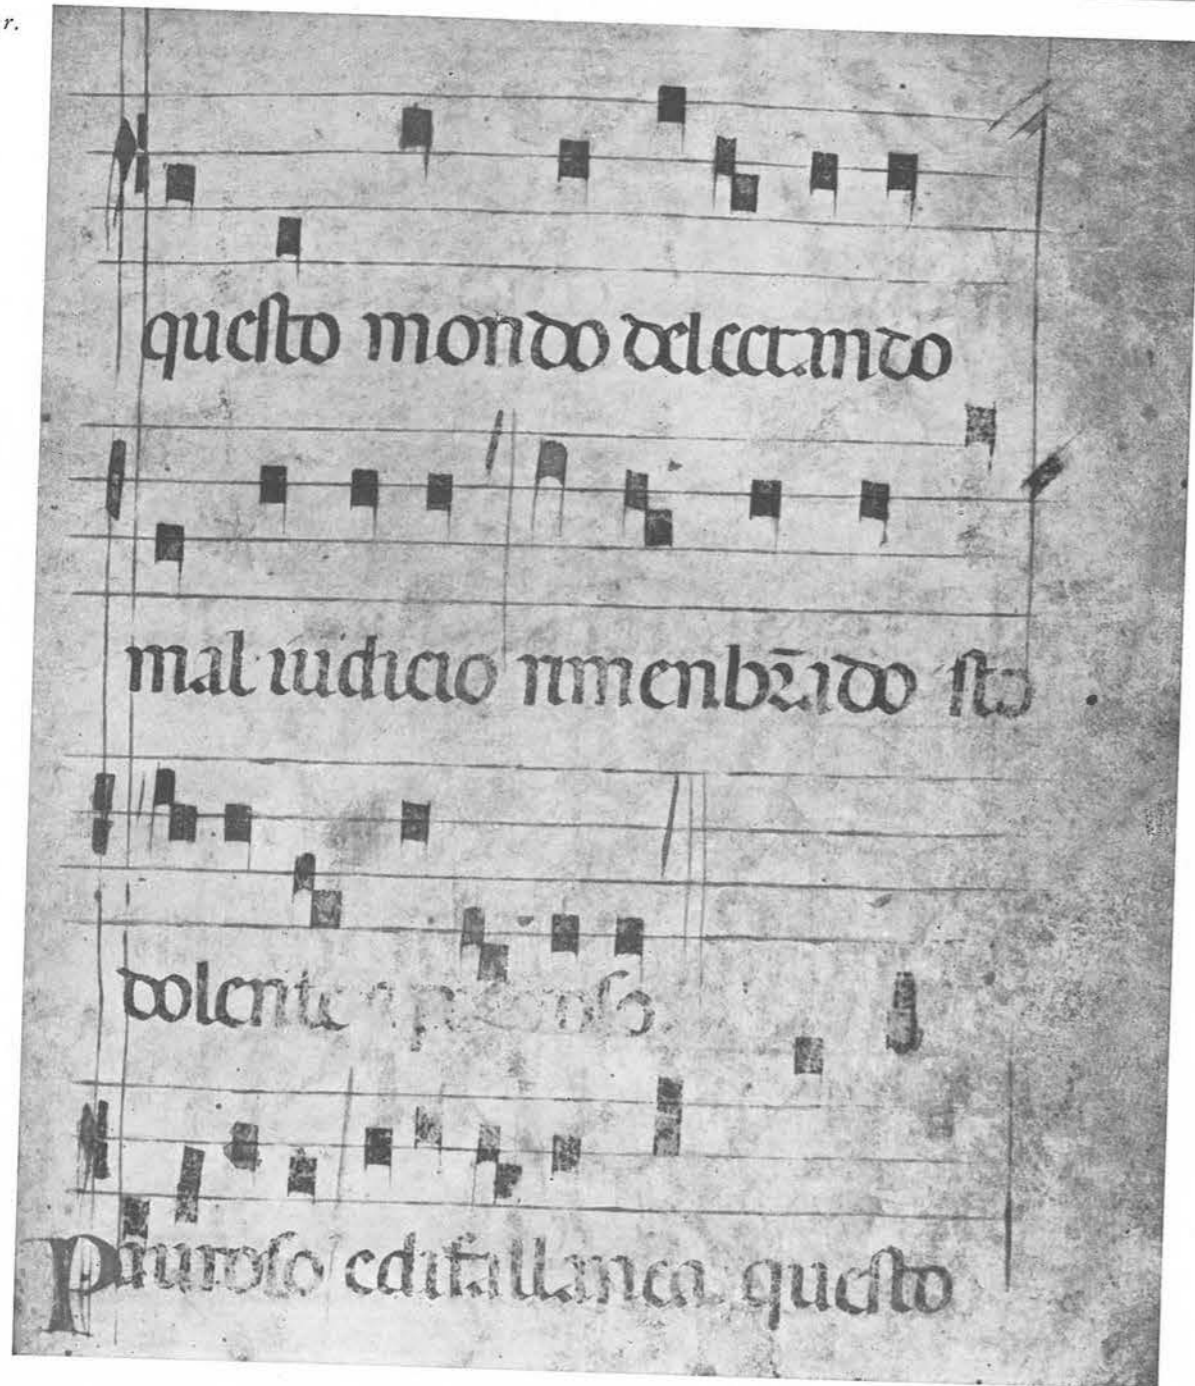 r.
questo mondo delectando
mal iudicio rimenbrādo sto
dolente
Pauroso e di fallança questo